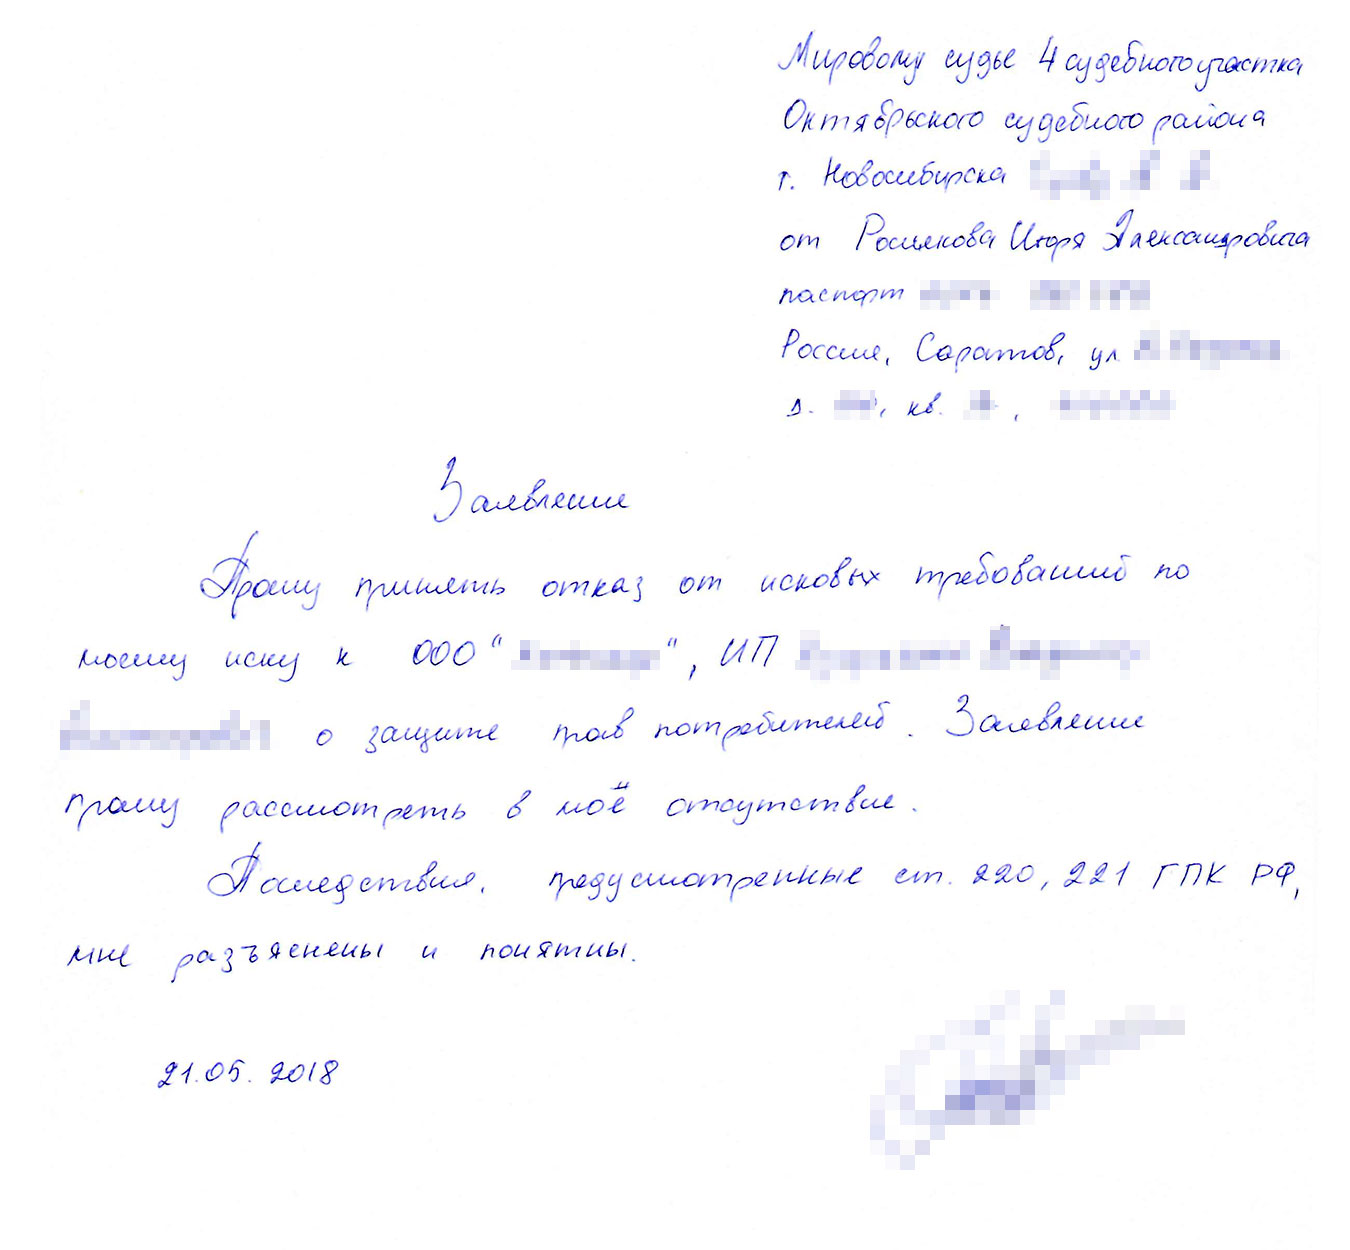 Мировому судье 4 судебного участка
Октябрьского судебного района
г. Новосибирска
от Рослякова Игоря Александровича
паспорт
Россия, Саратов, ул
д. , кв. ,
Заявление
Прошу принять отказ от исковых требований по
моему иску к ООО " ", ИП
о защите прав потребителей. Заявление
прошу рассмотреть в моё отсутствие.
Последствия, предусмотренные ст. 220, 221 ГПК РФ,
мне разъяснены и понятны.
21.05.2018